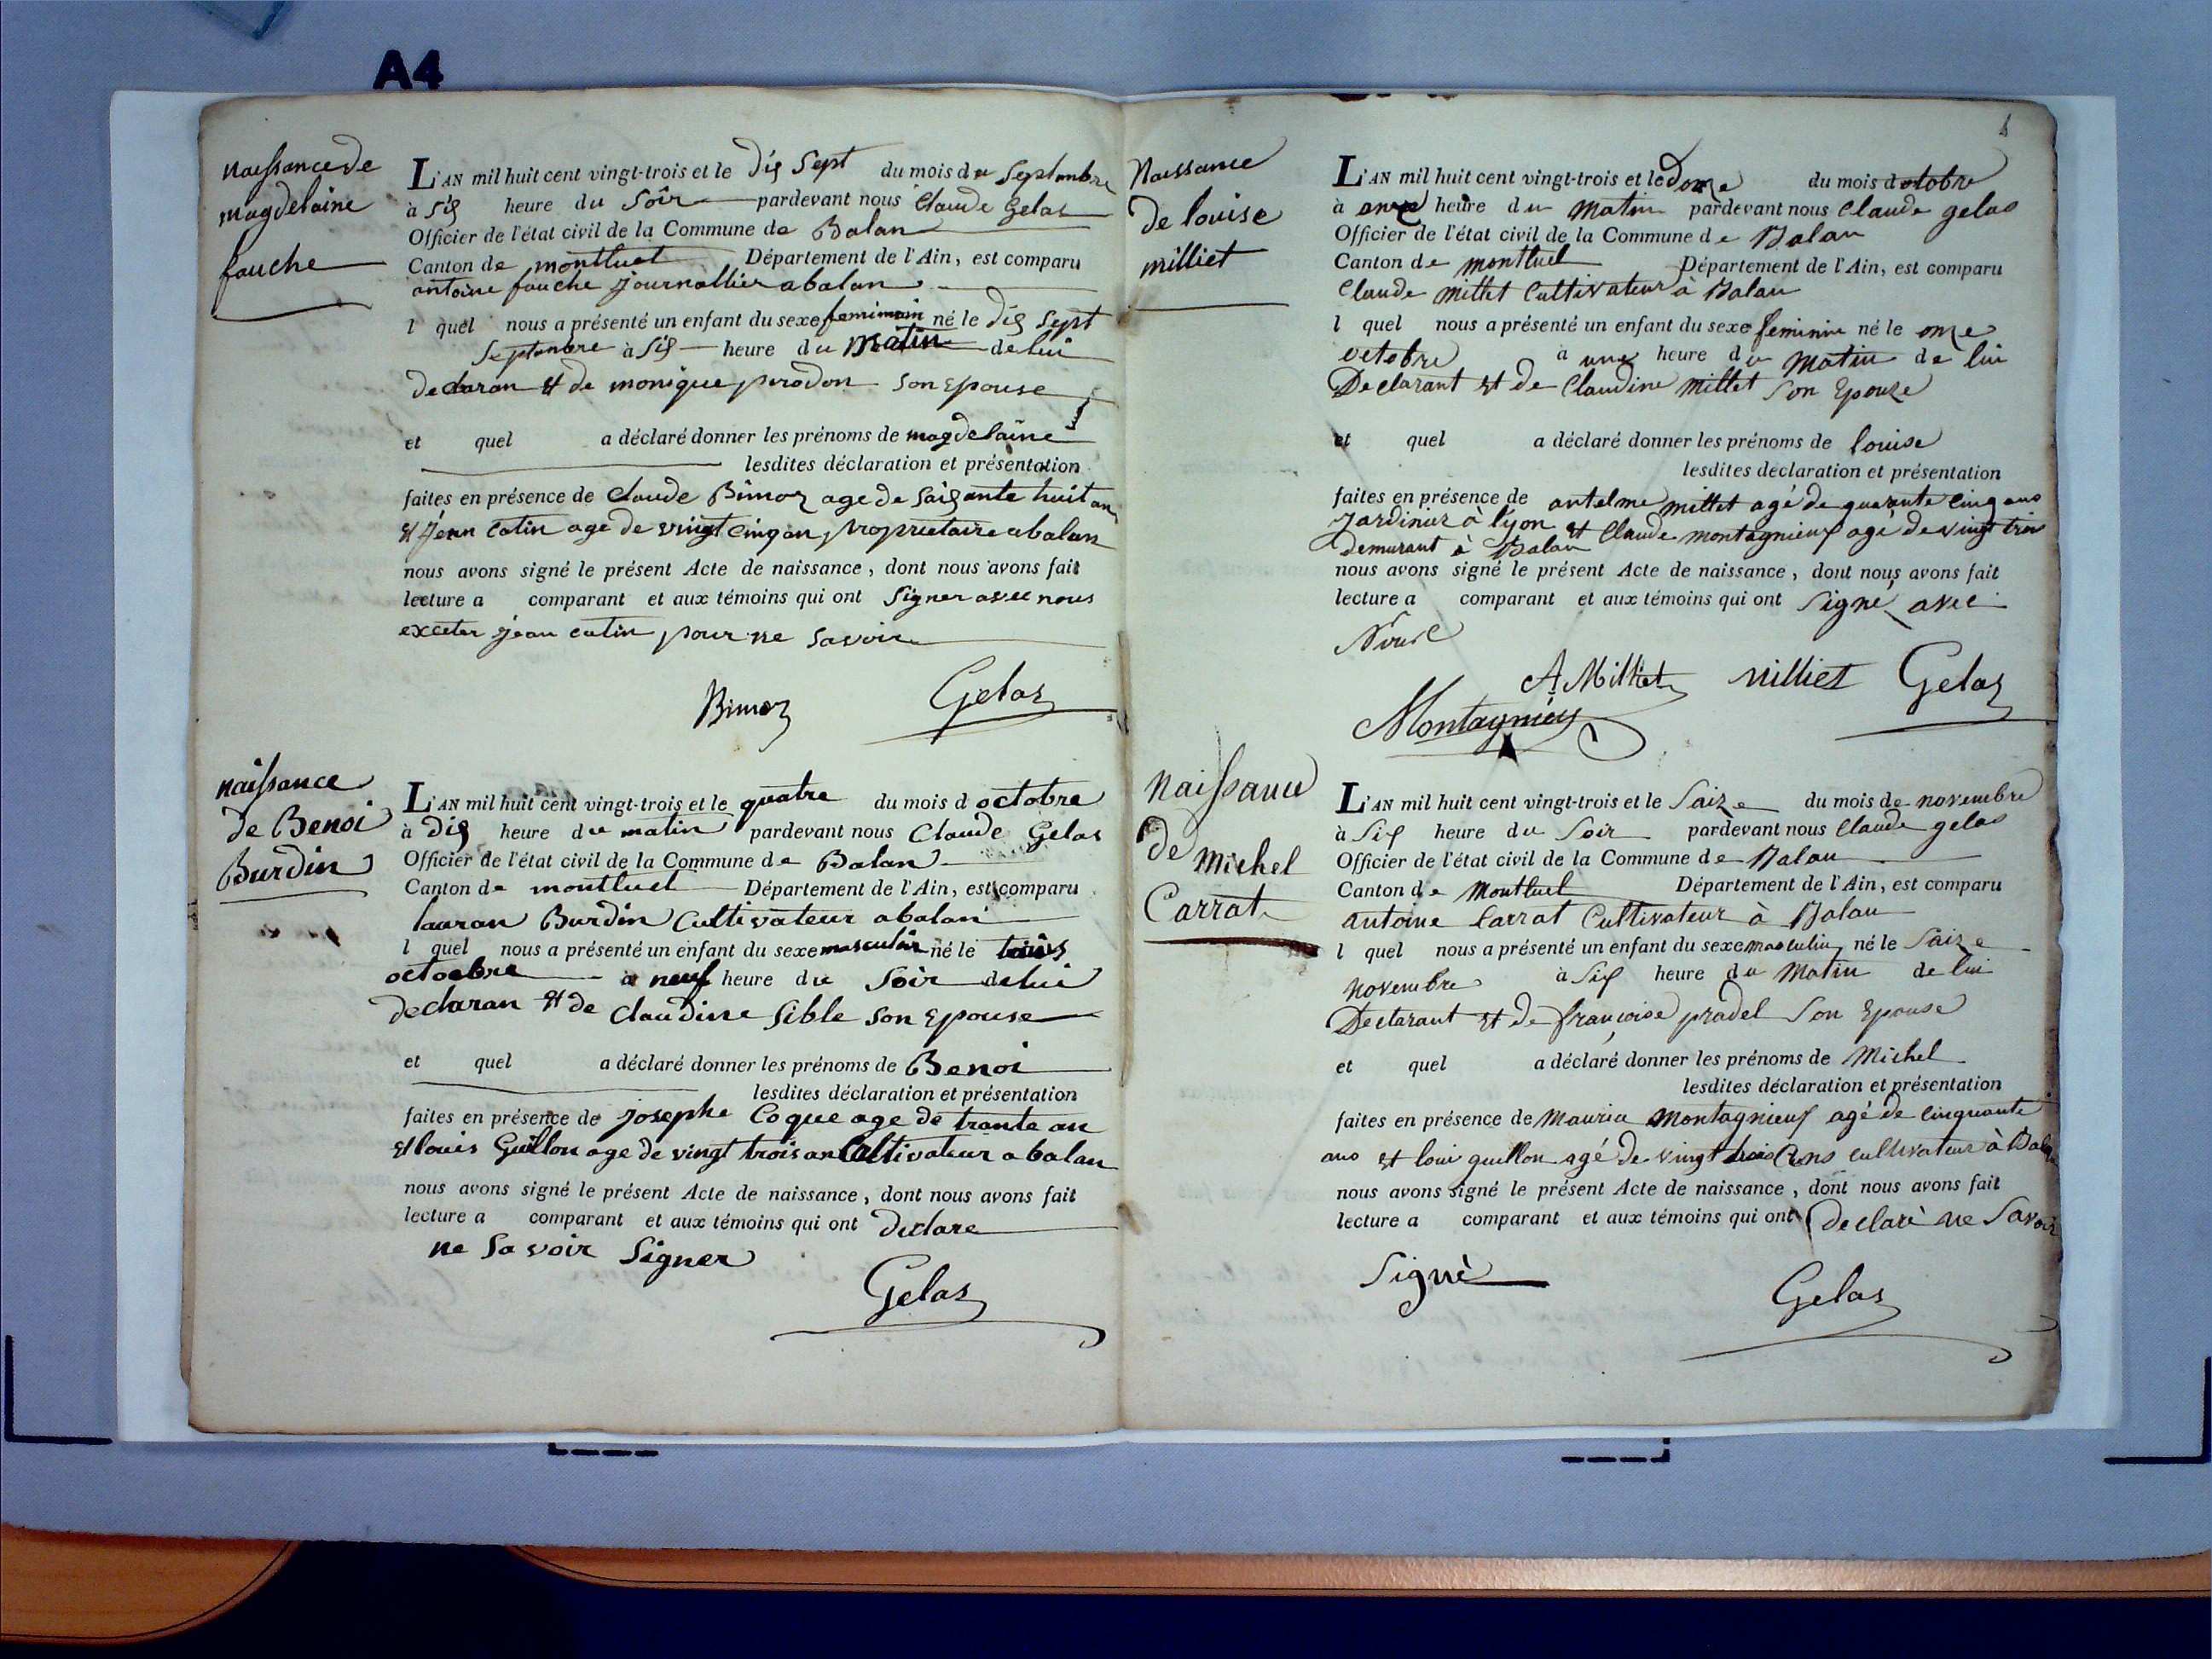 A4
naissance de
magdelaine
fauche
L'AN mil huit cent vingt-trois et le dis sept du mois de septembre
à sis heure du soir pardevant nous Claude Gelas
Officier de l'état civil de la Commune de Balan
Canton de montluel Département de l'Ain, est comparu
antoine fauche journallier abalan
l quel nous a présenté un enfant du sexe feminin né le dis sept
septembre à sis heure du matin de lui
declaran et de monique prodon son epouse
et quel a déclaré donner les prénoms de magdelaine
lesdites déclaration et présentation
faites en présence de Claude Bimoz age de saisante huit an
et jean catin age de vingt cinq an, proprietaire abalan
nous avons signé le présent Acte de naissance, dont nous avons fait
lecture a comparant et aux témoins qui ont signer avec nous
exceter jean catin pour ne savoir
Bimoz Gelas
naissance
de Benoi
Burdin
L'AN mil huit cent vingt-trois et le quatre du mois d octobre
à dis heure du matin pardevant nous Claude Gelas
Officier de l'état civil de la Commune de Balan
Canton de montluel Département de l'Ain, est comparu
lauran Burdin Cultivateur abalan
l quel nous a présenté un enfant du sexe masculin né le
octoebre à neuf heure du soir de lui
declaran et de claudine sible son epouse
et quel a déclaré donner les prénoms de Benoi
lesdites déclaration et présentation
faites en présence de josephe Coque age de trante an
et louis Guillon age de vingt trois an Cultivateur abalan
nous avons signé le présent Acte de naissance, dont nous avons fait
lecture a comparant et aux témoins qui ont declare
ne savoir signer
Gelas
Naissance
de louise
milliet
L'AN mil huit cent vingt-trois et le douze du mois d octobre
à onze heure du matin pardevant nous Claude gelas
Officier de l'état civil de la Commune de Balan
Canton de montluel Département de l'Ain, est comparu
Claude millet Cultivateur à Balan
l quel nous a présenté un enfant du sexe feminin né le onze
octobre à une heure du matin de lui
Declarant et de Claudine millet son epouze
et quel a déclaré donner les prénoms de louise
lesdites déclaration et présentation
faites en présence de antelme millet agé de quarante cinq ans
Jardinier à lyon et Claude montagnieux age de vingt trois
demurant à Balan
nous avons signé le présent Acte de naissance, dont nous avons fait
lecture a comparant et aux témoins qui ont signé avec
Nous
A Milliet milliet Gelas
Montagnieux
Naissance
de Michel
Carrat
L'AN mil huit cent vingt-trois et le saize du mois de novembre
à six heure du soir pardevant nous Claude gelas
Officier de l'état civil de la Commune de Balan
Canton de Montluel Département de l'Ain, est comparu
antoine Carrat Cultivateur à Balan
l quel nous a présenté un enfant du sexe masculin né le saize
novembre à six heure du matin de lui
Declarant et de françoise pradel son epouse
et quel a déclaré donner les prénoms de Michel
lesdites déclaration et présentation
faites en présence de Maurice Montagnieux agé de cinquante
ans et loui guillon agé de vingt trois ans cultivateur à Balan
nous avons signé le présent Acte de naissance, dont nous avons fait
lecture a comparant et aux témoins qui ont declaré ne savoir
signè
Gelas